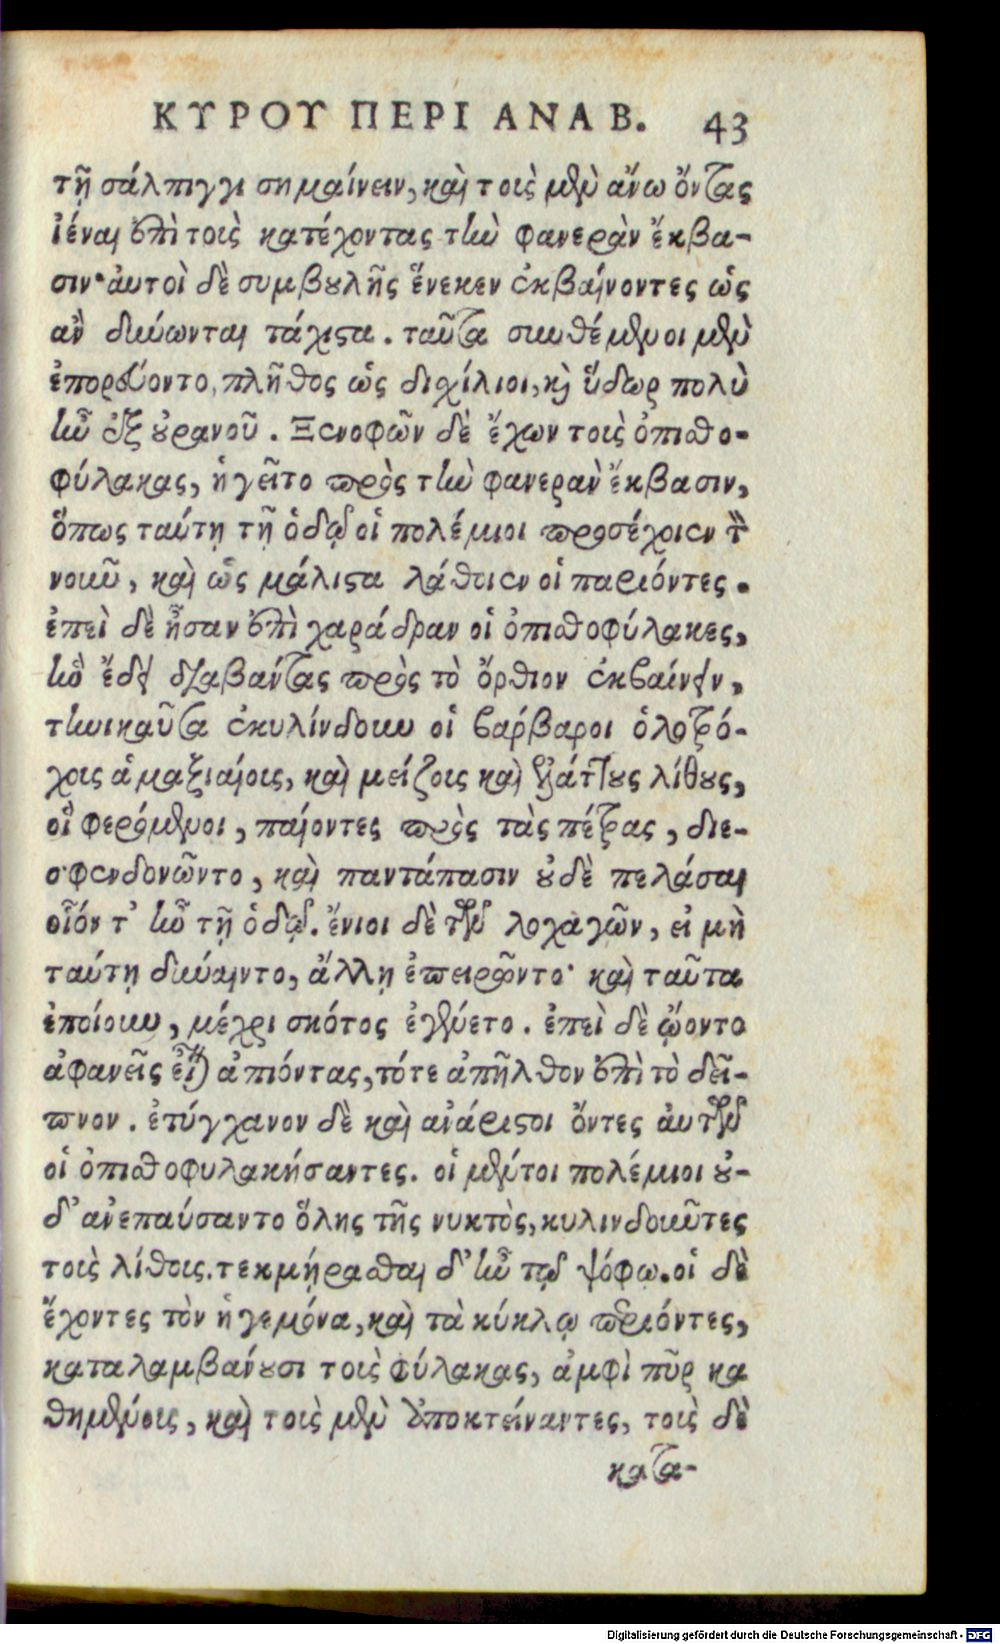 ΚΥΡΟΥ ΠΕΡΙ ΑΝΑΒ. 43
τῇ σάλπιγγι σημαίνειν, καὶ τοὺς μὲν ἄνω ὄντας
ἰέναι ἐπὶ τοὺς κατέχοντας τὴν φανερὰν ἔκβα-
σιν· ἀυτοὶ δὲ συμβουλῆς ἕνεκεν ἐκβαίνοντες ὡς
ἂν δύνωνται τάχιστα. ταῦτα συνθέμενοι μὲν
ἐπορεύοντο, πλῆθος ὡς διχίλιοι, καὶ ὕδωρ πολὺ
ἦν ἐξ οὐρανοῦ. Ξενοφῶν δὲ ἔχων τοὺς ὀπισθο-
φύλακας, ἡγεῖτο πρὸς τὴν φανερὰν ἔκβασιν,
ὅπως ταύτῃ τῇ ὁδῷ οἱ πολέμιοι προσέχοιεν τὸν
νοῦν, καὶ ὡς μάλιστα λάθοιεν οἱ παριόντες.
ἐπεὶ δὲ ἦσαν ἐπὶ χαράδραν οἱ ὀπισθοφύλακες,
ἣν ἔδει διαβάντας πρὸς τὸ ὄρθιον ἐκβαίνειν,
τηνικαῦτα ἐκυλίνδουν οἱ βάρβαροι ὁλοτρό-
χοις ἁμαξιαίοις, καὶ μείζοις καὶ ἐλάττους λίθους,
οἳ φερόμενοι, παίοντες πρὸς τὰς πέτρας, διε-
σφενδονῶντο, καὶ παντάπασιν οὐδὲ πελάσαι
οἷόν τ' ἦν τῇ ὁδῷ. ἔνιοι δὲ τῶν λοχαγῶν, εἰ μὴ
ταύτῃ δύναιντο, ἄλλῃ ἐπειρῶντο· καὶ ταῦτα
ἐποίουν, μέχρι σκότος ἐγένετο. ἐπεὶ δὲ ᾤοντο
ἀφανεῖς εἶναι ἀπιόντας, τότε ἀπῆλθον ἐπὶ τὸ δεῖ-
πνον. ἐτύγχανον δὲ καὶ ἀνάριστοι ὄντες ἀυτῶν
οἱ ὀπισθοφυλακήσαντες. οἱ μέντοι πολέμιοι οὐ-
δ' ἀνεπαύσαντο ὅλης τῆς νυκτὸς, κυλινδοῦντες
τοὺς λίθους. τεκμήρασθαι δ' ἦν τῷ ψόφῳ. οἱ δὲ
ἔχοντες τὸν ἡγεμόνα, καὶ τὰ κύκλῳ περιόντες,
καταλαμβάνουσι τοὺς φύλακας, ἀμφὶ πῦρ κα
θημένους, καὶ τοὺς μὲν ἀποκτείναντες, τοὺς δὲ
κατα-
Digitalisierung gefördert durch die Deutsche Forschungsgemeinschaft - DFG